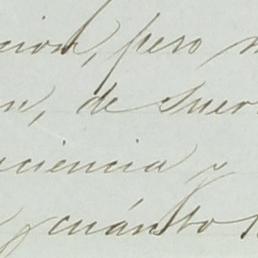 cion, pero n
n, de suer
iciencia y
y cuánto